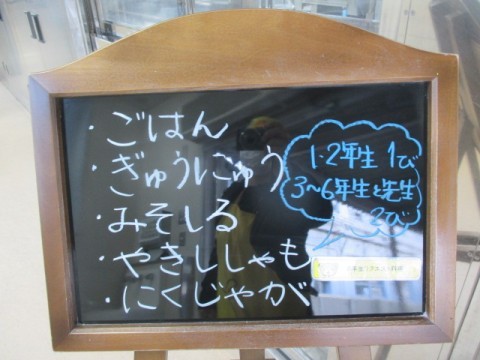 ・ごはん
・ぎゅうにゅう
・みそしる
・やきししゃも
・にくじゃが
1・2年生 1び
3〜6年生と先生
3び